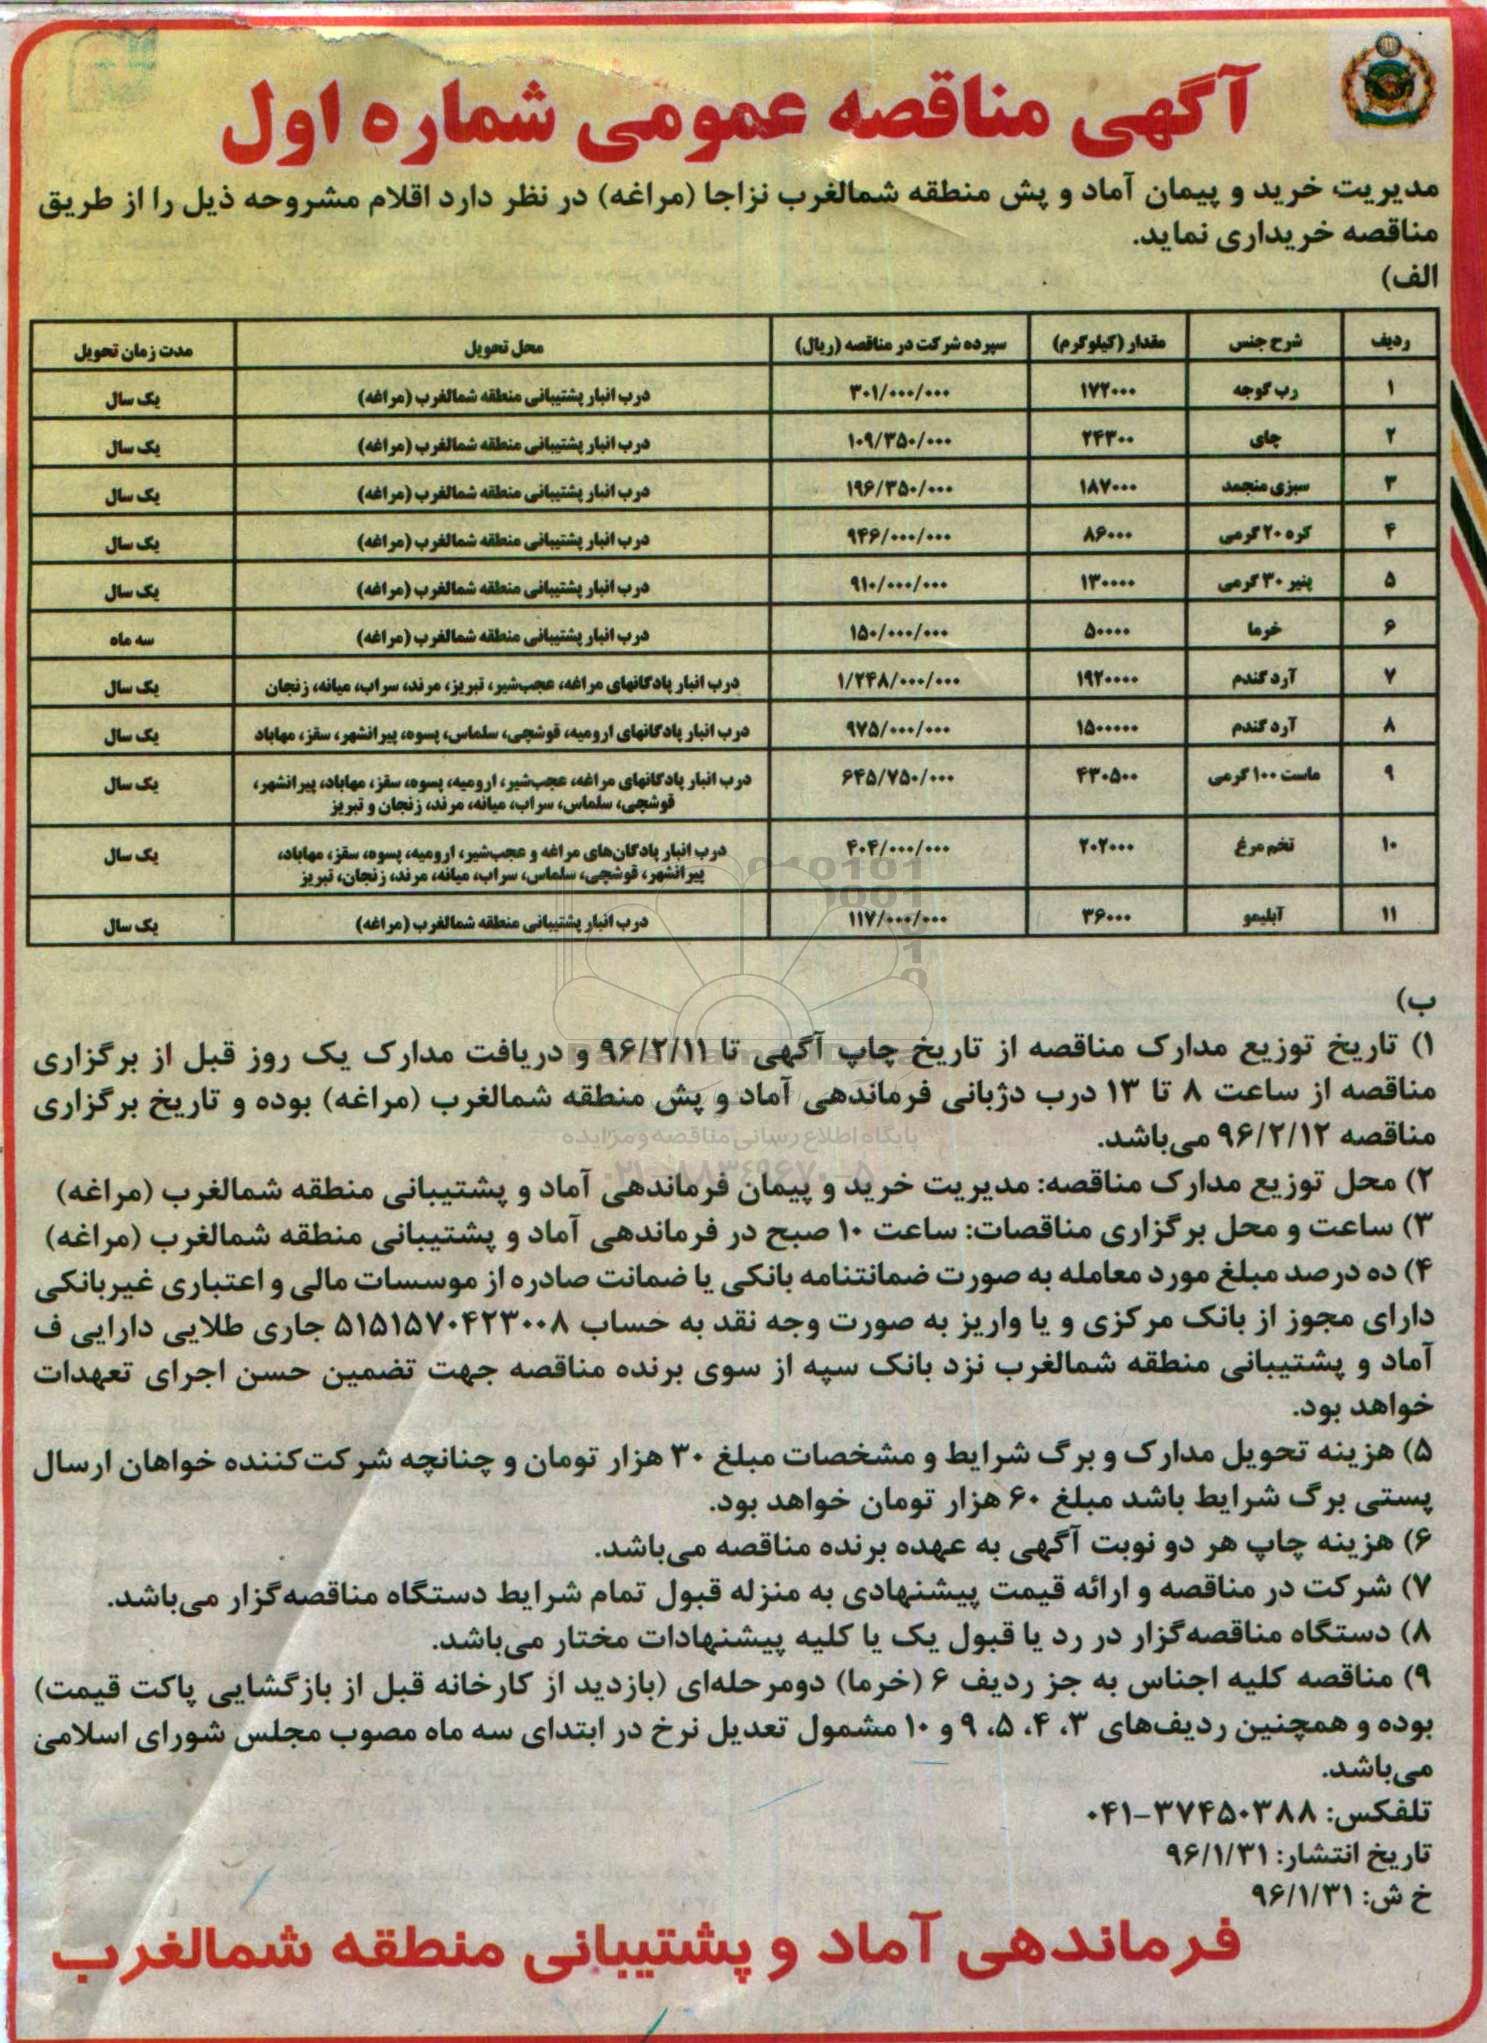 آگهی مناقصه عمومی شماره اول
مدیریت خرید و پیمان آماد و پش منطقه شمالغرب نزاجا (مراغه) در نظر دارد اقلام مشروحه ذیل را از طریق
مناقصه خریداری نماید.
الف)
ردیف شرح جنس مقدار (کیلوگرم) سپرده شرکت در مناقصه (ریال) محل تحویل مدت زمان تحویل
۱ رب گوجه ۱۷۲۰۰۰ ۳۰۱/۰۰۰/۰۰۰ درب انبار پشتیبانی منطقه شمالغرب (مراغه) یک سال
۲ چای ۲۴۳۰۰ ۱۰۹/۳۵۰/۰۰۰ درب انبار پشتیبانی منطقه شمالغرب (مراغه) یک سال
۳ سبزی منجمد ۱۸۷۰۰۰ ۱۹۶/۳۵۰/۰۰۰ درب انبار پشتیبانی منطقه شمالغرب (مراغه) یک سال
۴ کره ۲۰ گرمی ۸۶۰۰۰ ۹۴۶/۰۰۰/۰۰۰ درب انبار پشتیبانی منطقه شمالغرب (مراغه) یک سال
۵ پنیر ۳۰ گرمی ۱۳۰۰۰۰ ۹۱۰/۰۰۰/۰۰۰ درب انبار پشتیبانی منطقه شمالغرب (مراغه) یک سال
۶ خرما ۵۰۰۰۰ ۱۵۰/۰۰۰/۰۰۰ درب انبار پشتیبانی منطقه شمالغرب (مراغه) سه ماه
۷ آرد گندم ۱۹۲۰۰۰۰ ۱/۲۴۸/۰۰۰/۰۰۰ درب انبار پادگانهای مراغه، عجب‌شیر، تبریز، مرند، سراب، میانه، زنجان یک سال
۸ آرد گندم ۱۵۰۰۰۰۰ ۹۷۵/۰۰۰/۰۰۰ درب انبار پادگانهای ارومیه، قوشچی، سلماس، پسوه، پیرانشهر، سقز، مهاباد یک سال
۹ ماست ۱۰۰ گرمی ۴۳۰۵۰۰ ۶۴۵/۷۵۰/۰۰۰ درب انبار پادگانهای مراغه، عجب‌شیر، ارومیه، پسوه، سقز، مهاباد، پیرانشهر، یک سال
قوشچی، سلماس، سراب، میانه، مرند، زنجان و تبریز
۱۰ تخم مرغ ۲۰۲۰۰۰ ۴۰۴/۰۰۰/۰۰۰ درب انبار پادگان‌های مراغه و عجب‌شیر، ارومیه، پسوه، سقز، مهاباد، یک سال
پیرانشهر، قوشچی، سلماس، سراب، میانه، مرند، زنجان، تبریز
۱۱ آبلیمو ۳۶۰۰۰ ۱۱۷/۰۰۰/۰۰۰ درب انبار پشتیبانی منطقه شمالغرب (مراغه) یک سال
ب)
۱) تاریخ توزیع مدارک مناقصه از تاریخ چاپ آگهی تا ۹۶/۲/۱۱ و دریافت مدارک یک روز قبل از برگزاری
مناقصه از ساعت ۸ تا ۱۳ درب دژبانی فرماندهی آماد و پش منطقه شمالغرب (مراغه) بوده و تاریخ برگزاری
مناقصه ۹۶/۲/۱۲ می‌باشد.
پایگاه اطلاع رسانی مناقصه و مزایده
۰۲۱-۸۸۳۴۹۶۷۰-۵
۲) محل توزیع مدارک مناقصه: مدیریت خرید و پیمان فرماندهی آماد و پشتیبانی منطقه شمالغرب (مراغه)
۳) ساعت و محل برگزاری مناقصات: ساعت ۱۰ صبح در فرماندهی آماد و پشتیبانی منطقه شمالغرب (مراغه)
۴) ده درصد مبلغ مورد معامله به صورت ضمانتنامه بانکی یا ضمانت صادره از موسسات مالی و اعتباری غیربانکی
دارای مجوز از بانک مرکزی و یا واریز به صورت وجه نقد به حساب ۵۱۵۱۵۷۰۴۲۳۰۰۸ جاری طلایی دارایی ف
آماد و پشتیبانی منطقه شمالغرب نزد بانک سپه از سوی برنده مناقصه جهت تضمین حسن اجرای تعهدات
خواهد بود.
۵) هزینه تحویل مدارک و برگ شرایط و مشخصات مبلغ ۳۰ هزار تومان و چنانچه شرکت‌کننده خواهان ارسال
پستی برگ شرایط باشد مبلغ ۶۰ هزار تومان خواهد بود.
۶) هزینه چاپ هر دو نوبت آگهی به عهده برنده مناقصه می‌باشد.
۷) شرکت در مناقصه و ارائه قیمت پیشنهادی به منزله قبول تمام شرایط دستگاه مناقصه‌گزار می‌باشد.
۸) دستگاه مناقصه‌گزار در رد یا قبول یک یا کلیه پیشنهادات مختار می‌باشد.
۹) مناقصه کلیه اجناس به جز ردیف ۶ (خرما) دومرحله‌ای (بازدید از کارخانه قبل از بازگشایی پاکت قیمت)
بوده و همچنین ردیف‌های ۳، ۴، ۵، ۹ و ۱۰ مشمول تعدیل نرخ در ابتدای سه ماه مصوب مجلس شورای اسلامی
می‌باشد.
تلفکس: ۳۷۴۵۰۳۸۸-۰۴۱
تاریخ انتشار: ۹۶/۱/۳۱
خ ش: ۹۶/۱/۳۱
فرماندهی آماد و پشتیبانی منطقه شمالغرب